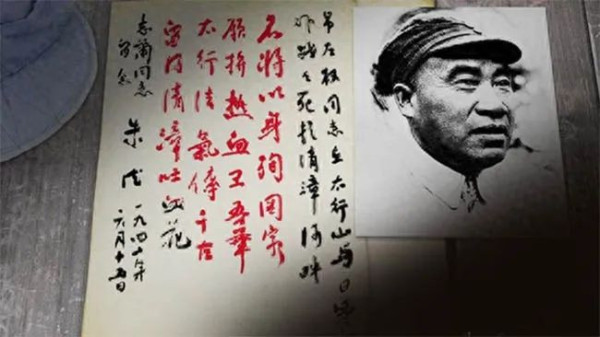 吊左权同志在太行山与日寇
作战战死于清漳河畔
名将以身殉国家
愿拚熱血卫吾華
太行浩氣傳千古
留得清漳吐血花
志蘭同志
留念
朱德
一九四二年
六月十五日